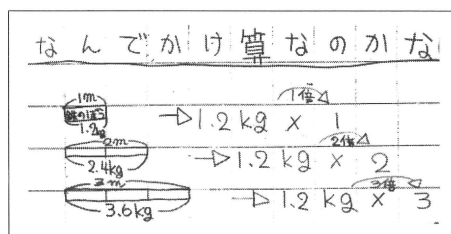 なんでかけ算なのかな
1m
鉄のぼう
1.2kg
→1.2kg × 1
1倍
2m
2.4kg
→1.2kg × 2
2倍
3m
3.6kg
→1.2kg × 3
3倍